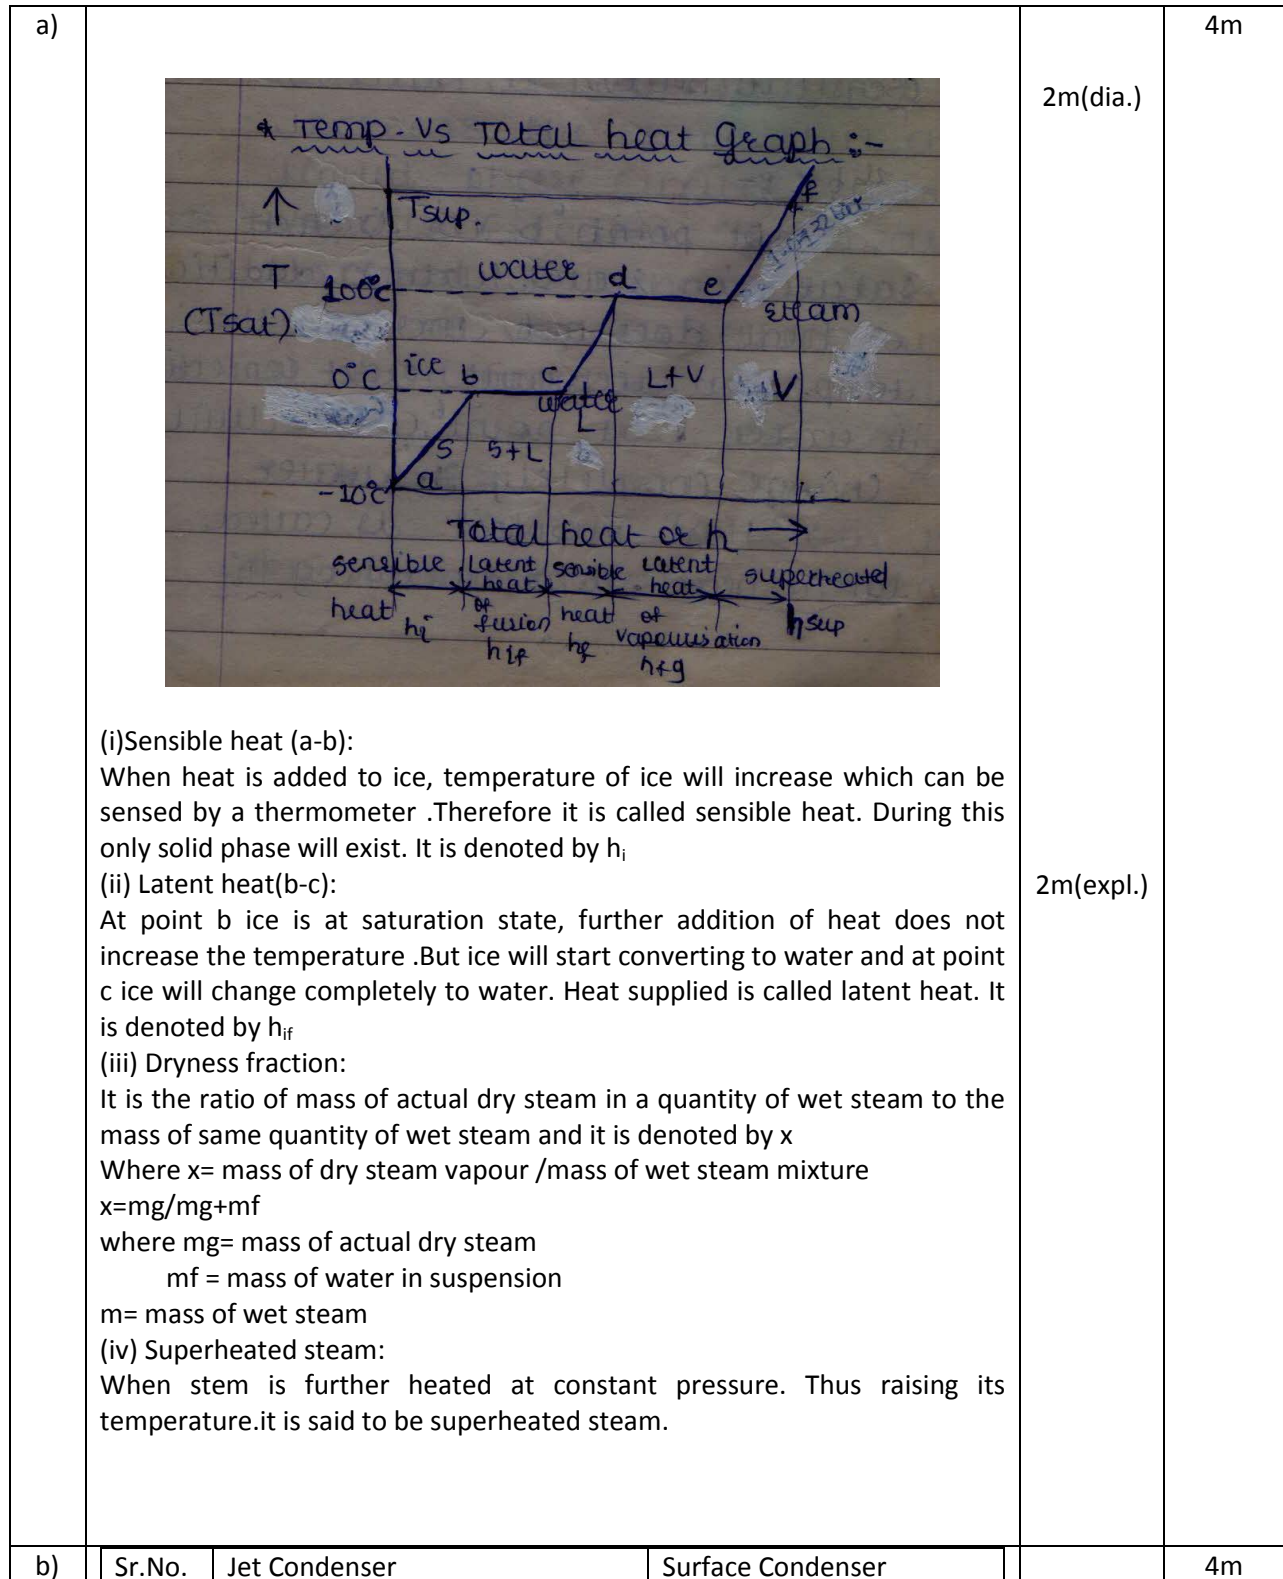 a)
4m
2m(dia.)
* Temp. Vs Total heat Graph :-
↑
Tsup.
f
T
water
d
e
100°c
(Tsat)
steam
0°C
ice
b
c
L+V
V
water
L
S
S+L
a
-10°c
Total heat or h →
sensible
Latent
sensible
Latent
superheated
heat
heat
heat
of
heat
of
hi
fusion
hf
vapourisation
hsup
hif
hfg
(i)Sensible heat (a-b):
When heat is added to ice, temperature of ice will increase which can be
sensed by a thermometer .Therefore it is called sensible heat. During this
only solid phase will exist. It is denoted by hi
(ii) Latent heat(b-c):
2m(expl.)
At point b ice is at saturation state, further addition of heat does not
increase the temperature .But ice will start converting to water and at point
c ice will change completely to water. Heat supplied is called latent heat. It
is denoted by hif
(iii) Dryness fraction:
It is the ratio of mass of actual dry steam in a quantity of wet steam to the
mass of same quantity of wet steam and it is denoted by x
Where x= mass of dry steam vapour /mass of wet steam mixture
x=mg/mg+mf
where mg= mass of actual dry steam
mf = mass of water in suspension
m= mass of wet steam
(iv) Superheated steam:
When stem is further heated at constant pressure. Thus raising its
temperature.it is said to be superheated steam.
b)
Sr.No. Jet Condenser Surface Condenser
4m